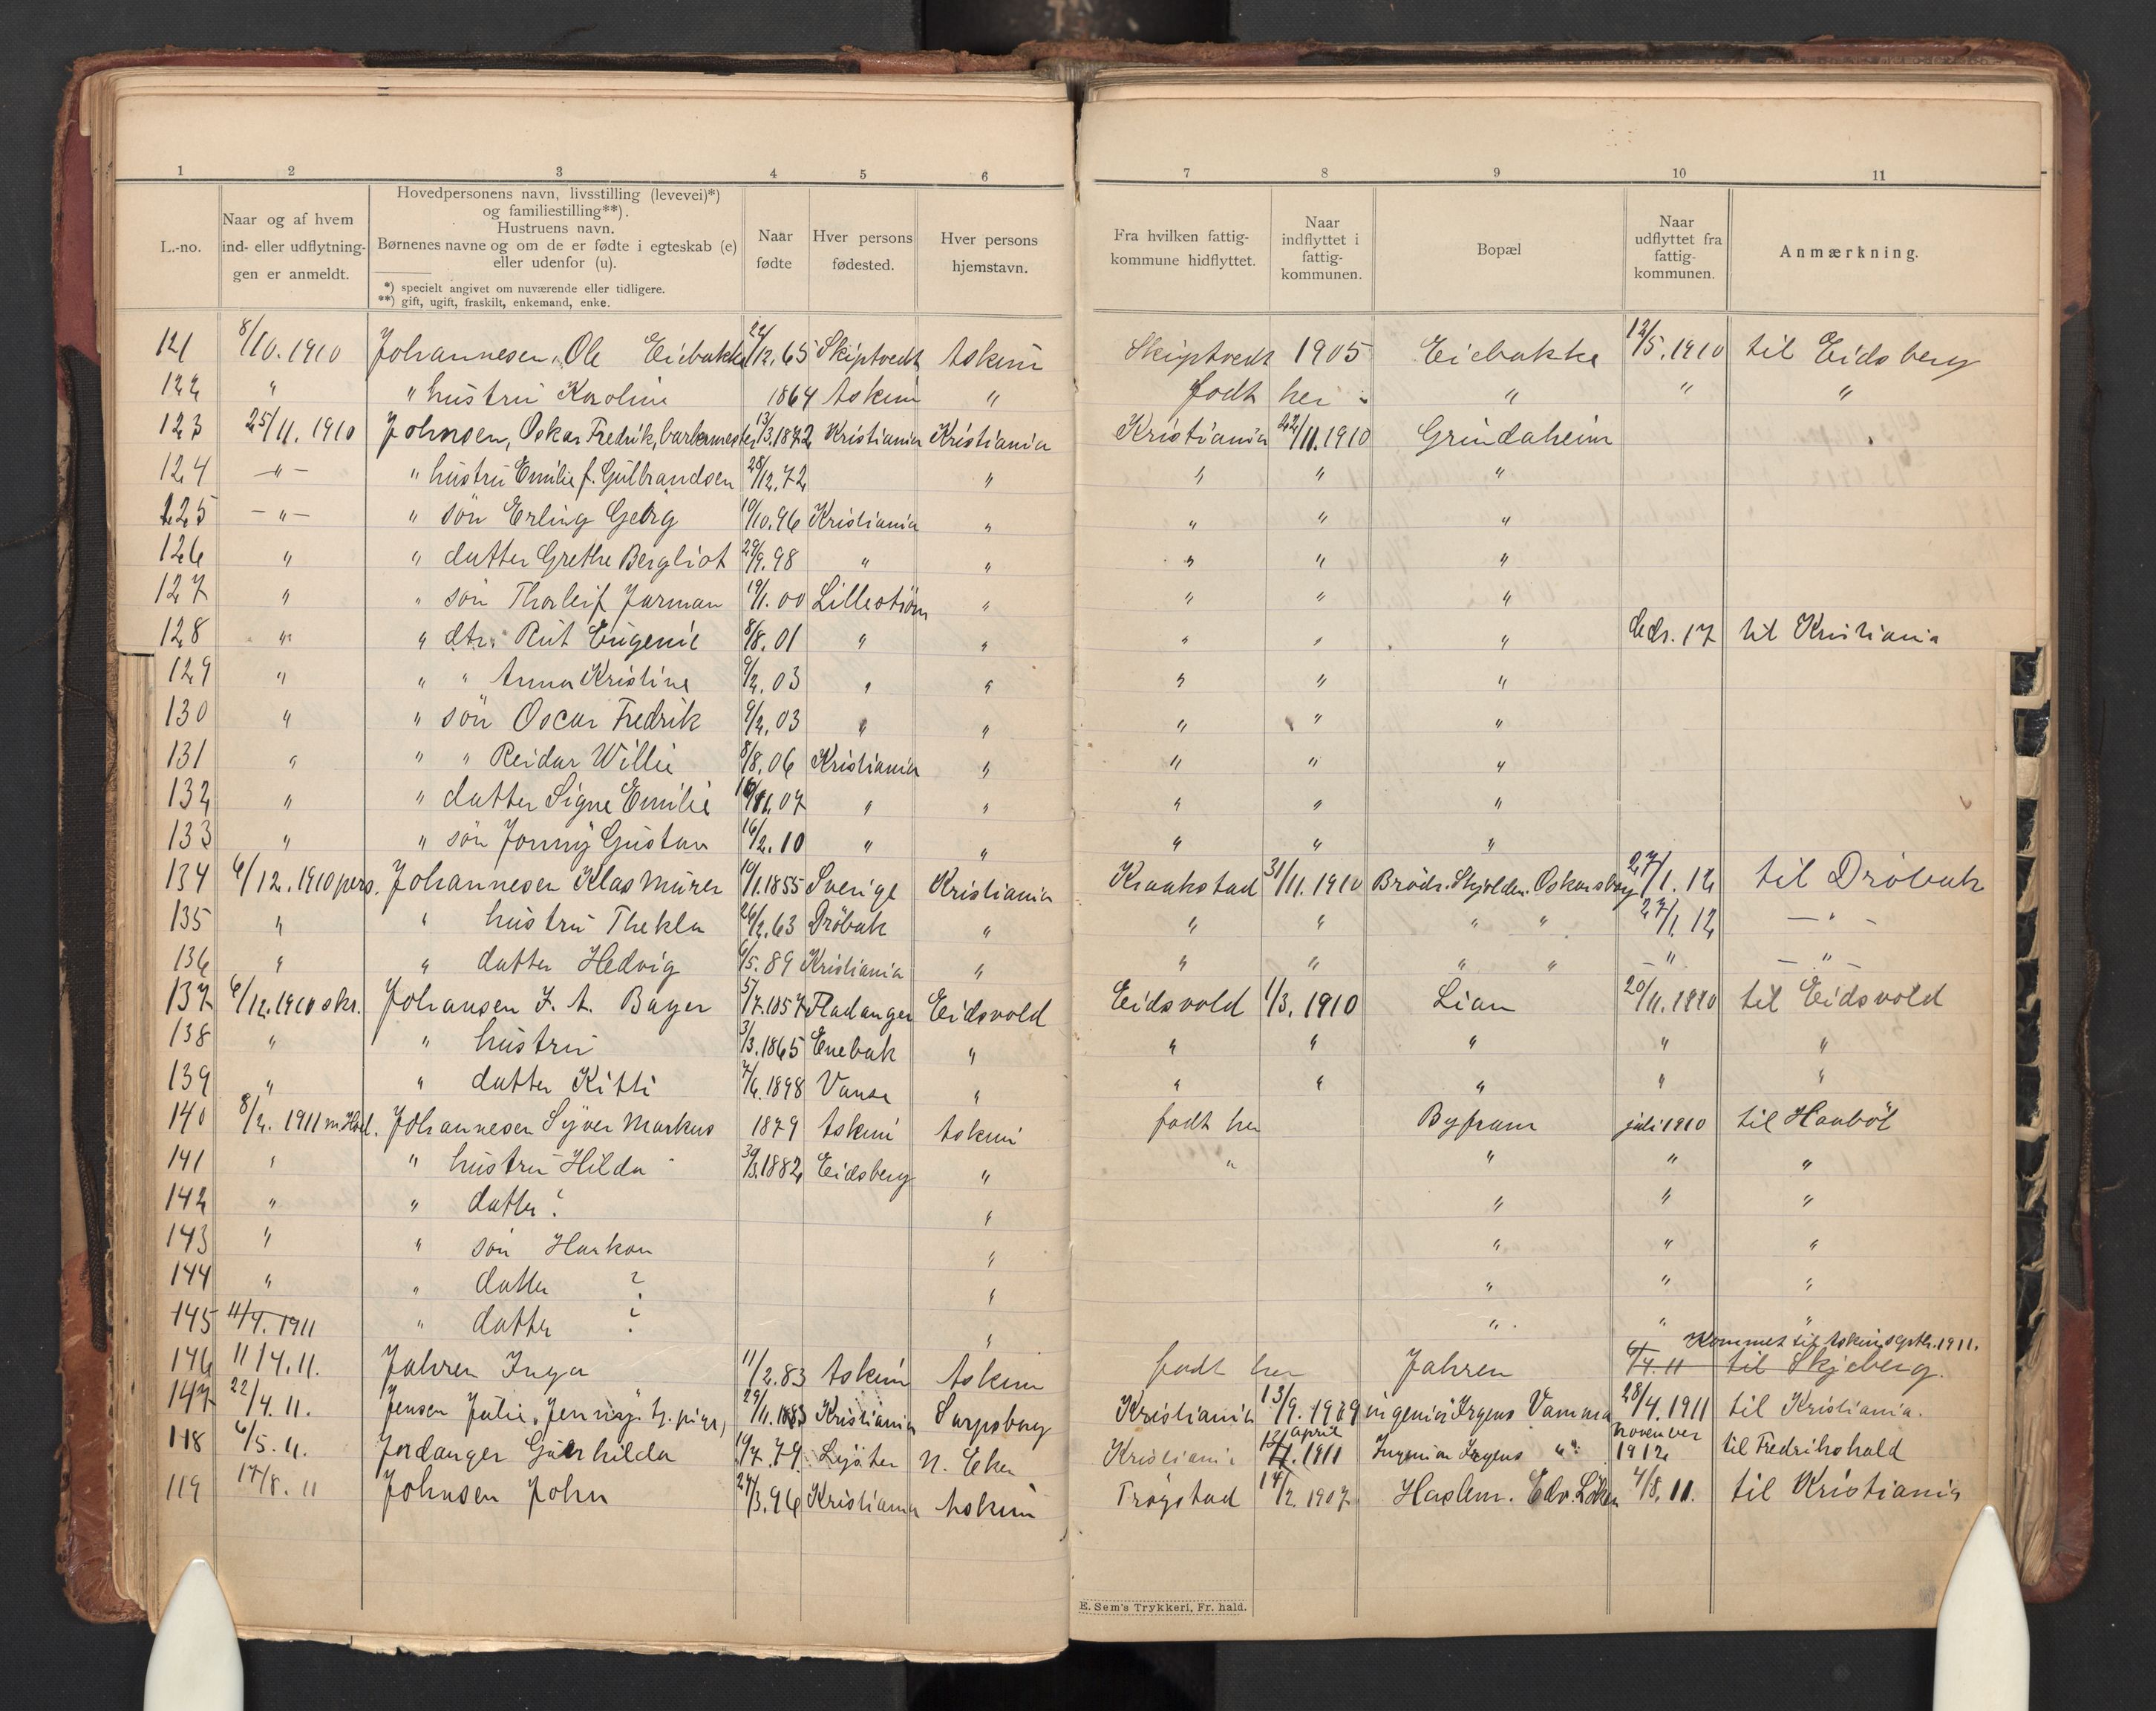 1 2 3 4 5 6 7 8 9 10 11
L.-no.
Naar og af hvem
ind- eller udflytnin-
gen er anmeldt.
Hovedpersonens navn, livsstilling (levevei)*)
og familiestilling**).
Hustruens navn.
Børnenes navne og om de er fødte i egteskab (e)
eller udenfor (u).
*) specielt angivet om nuværende eller tidligere.
**) gift, ugift, fraskilt, enkemand, enke.
Naar
fødte
Hver persons
fødested.
Hver persons
hjemstavn.
Fra hvilken fattig-
kommune hidflyttet.
Naar
indflyttet i
fattig-
kommunen.
Bopæl
Naar
udflyttet fra
fattig-
kommunen.
Anmærkning.
121 8/10. 1910 Johannesen, Ole Eidbakke 22/12. 65 Skiptvedt Askim Skiptvedt 1905 Eidbakke 12/5. 1910 til Eidsberg
122 " " hustru Karoline 1864 Askim " født her " " "
123 25/11. 1910 Johnsen, Oskar Fredrik, barkermester 13/3. 1872 Kristiania Kristiania Kristiania 22/11. 1910 Grindaheim
124 -"- " hustru Emilie f. Gulbrandsen 28/12. 72 " " " "
125 -"- " søn Erling Georg 10/10. 96 Kristiania " " " "
126 " " datter Grethe Bergliot 29/9. 98 " " " " "
127 " " søn Thorleif Jarman 19/1. 00 Lillestrøm " " " "
128 " " dtr. Rut Eugenie 8/8. 01 " " " " " Dcbr. 17 til Kristiania
129 " " " Anna Kristine 9/2. 03 " " " " "
130 " " søn Oscar Fredrik 9/2. 03 " " " " "
131 " " " Reidar Willie 8/8. 06 Kristiania " " " "
132 " " datter Signe Emilie 11. 07 " " " " "
133 " " søn Jonny Gustav 16/2. 10 " " " " "
134 6/12. 1910 pers. Johannesen Klas Murer 19/1. 1855 Sverige Kristiania Kraakstad 31/11. 1910 Brødr. Skjolden. Oskarsborg 27/1. 12 til Drøbak
135 " " hustru Thekla 26/2. 63 Drøbak " " " " " 27/1. 12 -"-
136 " " datter Hedvig 6/5. 89 Kristiania " " " " " -"- -"-
137 6/12. 1910 skr. Johansen J. A. Bager 5/7. 1857 Fladanger Eidsvold Eidsvold 1/3. 1910 Lian 20/11. 1910 til Eidsvold
138 " " hustru 3/3. 1865 Enebak " " " " " "
139 " " datter Kitti 7/6. 1898 Vanse " " " " " "
140 8/2. 1911 m. Johannesen Syver Markus 1879 Askim Askim født her Byfram juli 1910 til Haabøl
141 " " hustru Hilda 3/3. 1882 Eidsberg " " " " "
142 " " datter ? " " " "
143 " " søn Haakon " " " "
144 " " datter ? " " " "
145 11/4. 1911 " datter ? " " " "
Kommet til Askim septbr. 1911.
146 11/4. 11. Jahren Inga 11/2. 83 Askim Askim født her Jahren 6/4. 11 til Skjeberg.
147 22/4. 11. Jensen Julie, "Jenny" tj. pige, 29/11. 1883 Kristiania Sarpsborg Kristiania 13/9. 1909 ingeniør Irgens Vamma 28/4. 1911 til Kristiania.
118 6/5. 11. Jordanger Gunhilda 19/7. 79. N. Eker Kristiania april 1911 Ingeniør Irgens "" november 1912 til Fredrikshald
119 17/8. 11 Johnsen John 24/3. 96 Kristiania Askim Trøgstad 14/2. 1907 Haslem. Edv. Løken 4/8. 11. til Kristiania
E. Sem's Trykkeri, Fr. hald.